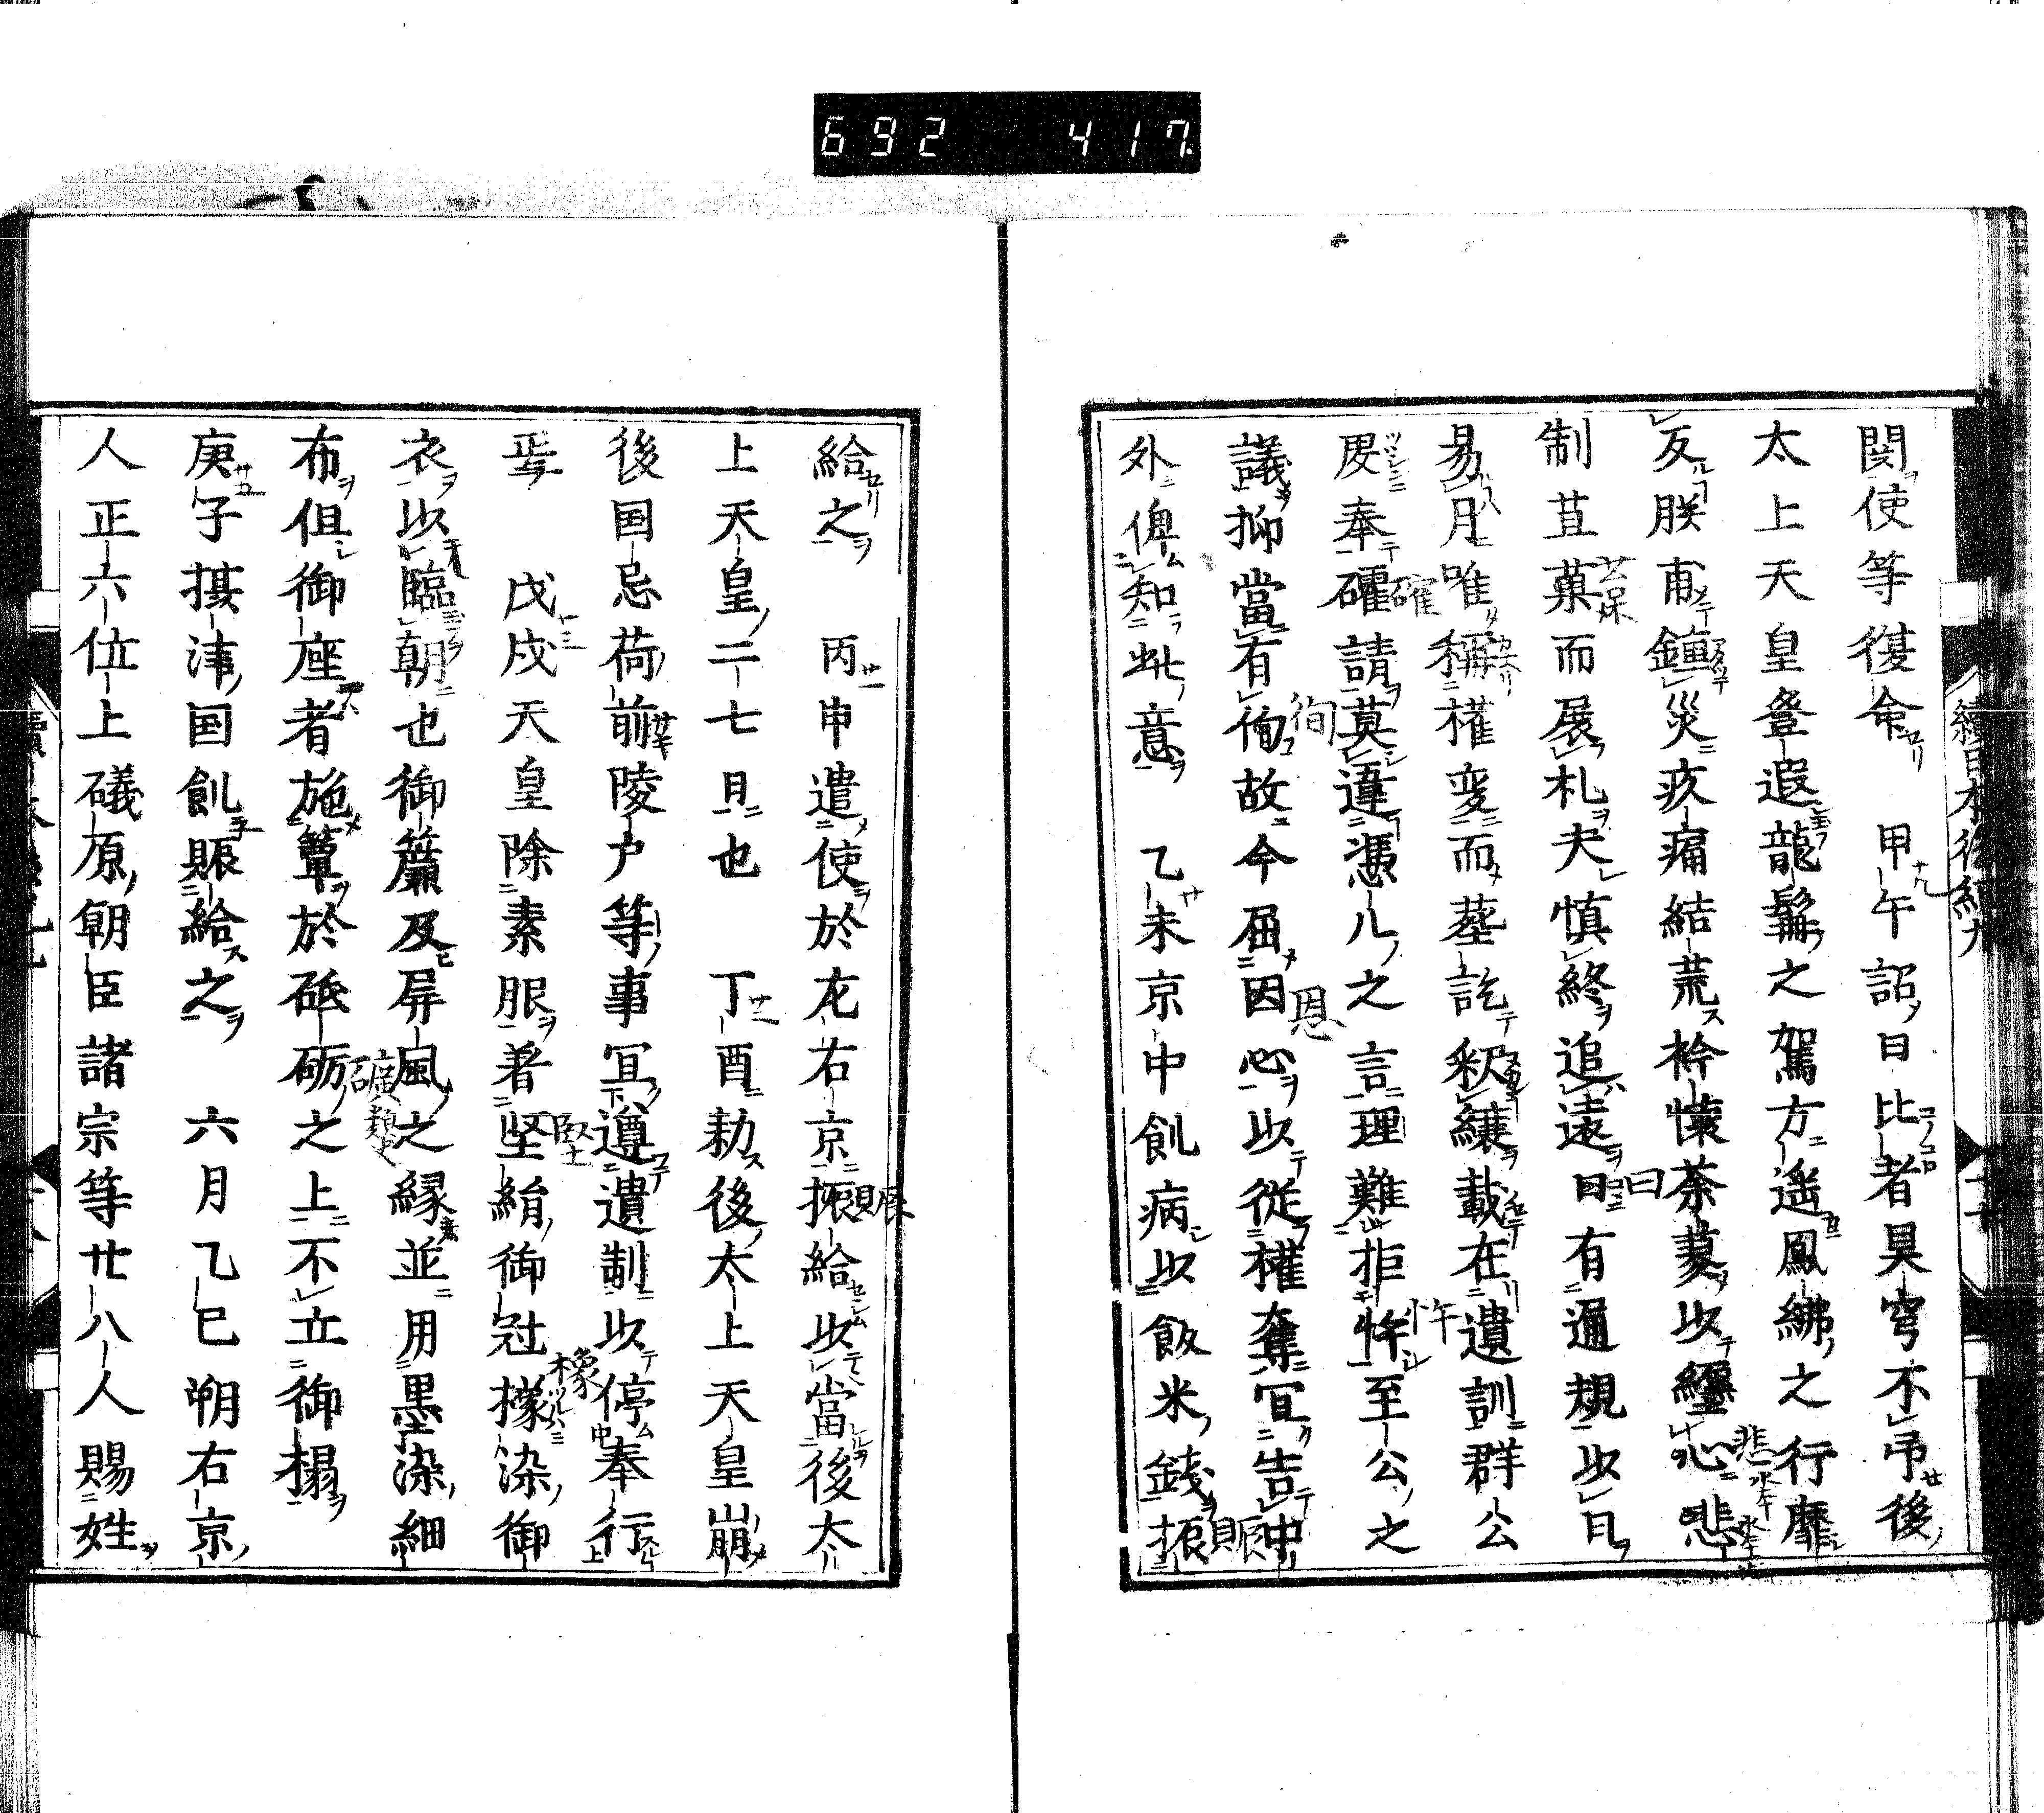 692 417
関使等復命 甲午詔曰比者昊穹不吊後
太上天皇登遐龍髯之駕方遥鳳紼之行靡
反朕甫鍾災疚痛結荒衿懐荼蓼以纒心悲
制苴菓而展札夫慎終追遠曰有通規以日
易月唯稱権変而葬訖釈縗載在遺訓群公
奉確請莫違凴几之言理難拒忤至公之
議抑當有徇故今屈因心以従権奪冝告中
外俾知此意 乙未京中飢病以飯米銭振
給之 丙申遣使於左右京振給以當後太
上天皇二七日也 丁酉勅後太上天皇崩
後国忌荷前陵戸等事冝遵遺制以停奉行
焉 戊戌天皇除素服着堅絹御冠橡染御
衣以臨朝也御簾及屏風之縁並用墨染細
布但御座者施簟於砥砺之上不立御榻
庚子摂津国飢賑給之 六月乙巳朔右京
人正六位上礒原朝臣諸宗等廿八人賜姓